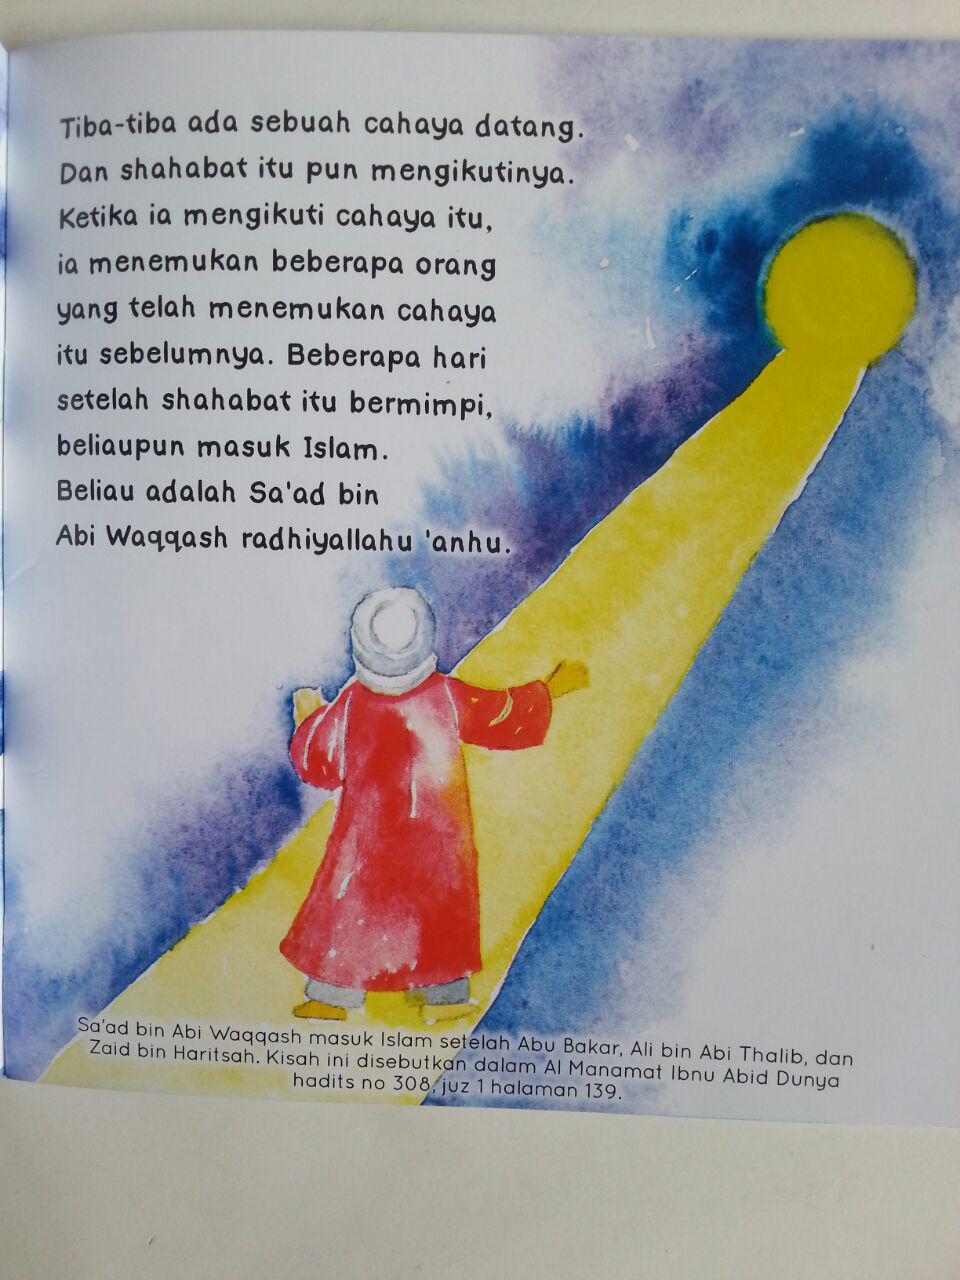 Tiba-tiba ada sebuah cahaya datang.
Dan shahabat itu pun mengikutinya.
Ketika ia mengikuti cahaya itu,
ia menemukan beberapa orang
yang telah menemukan cahaya
itu sebelumnya. Beberapa hari
setelah shahabat itu bermimpi,
beliaupun masuk Islam.
Beliau adalah Sa'ad bin
Abi Waqqash radhiyallahu 'anhu.
Sa'ad bin Abi Waqqash masuk Islam setelah Abu Bakar, Ali bin Abi Thalib, dan
Zaid bin Haritsah. Kisah ini disebutkan dalam Al Manamat Ibnu Abid Dunya
hadits no 308, juz 1 halaman 139.